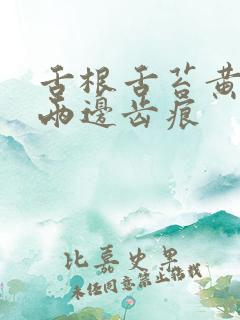 舌根舌苔黄
两邊齿痕
比慕史果
未经同意禁止临载